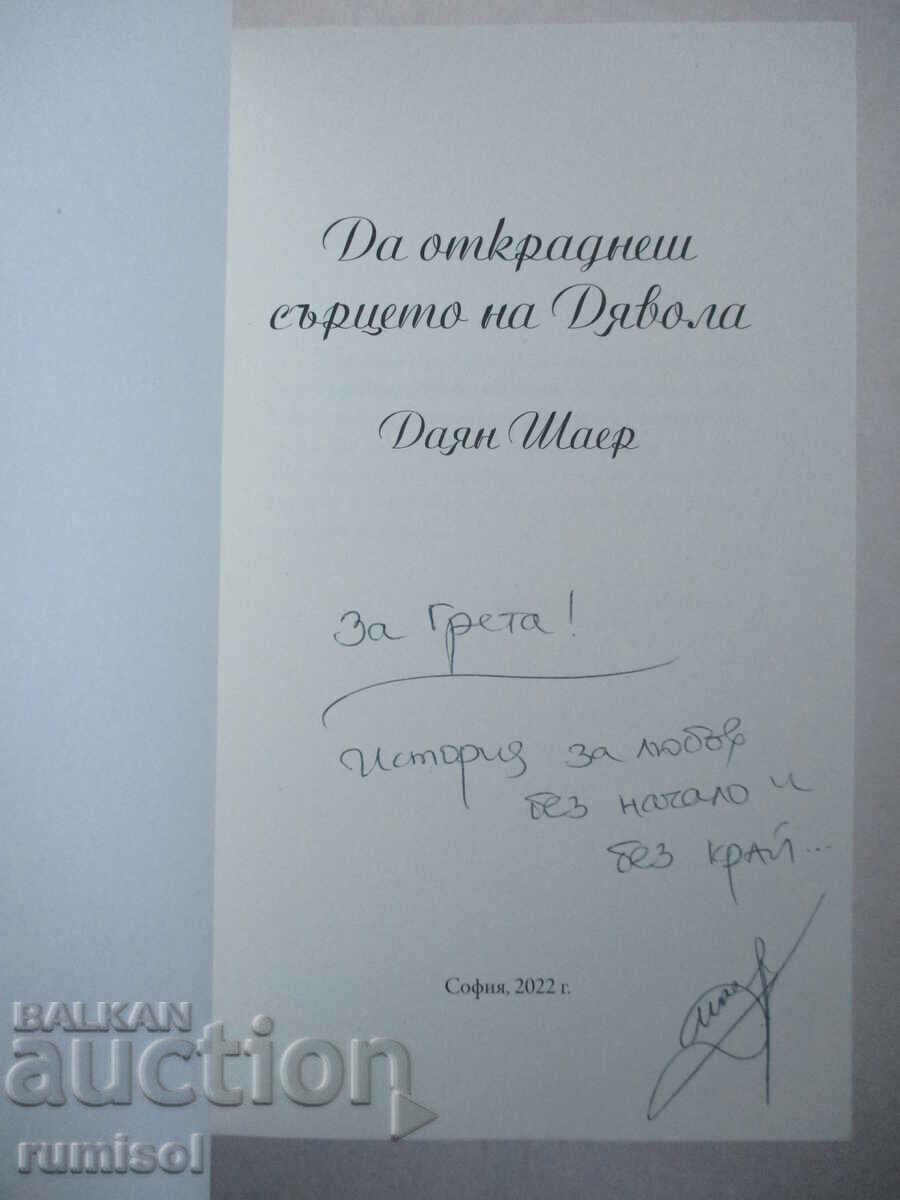 Да откраднеш
сърцето на Дявола
Даян Шаер
За Грета!
История за любов
без начало и
без край...
София, 2022 г.
BALKAN
auction
rumisol